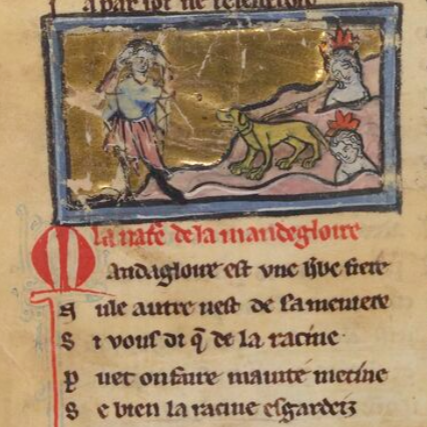 a par soi ne
la nat̃e de la mandegloire
Mandagloire est vne h̾be fiere
Nule autre nest de sa meniere
Si vous di q̄ de la racine
Puet on faire mainte mecine
Se bien la racine esgardeiz